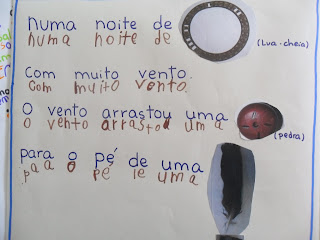 Numa noite de
numa noite de
(Lua-cheia)
Com muito vento.
com muito vento.
O vento arrastou uma
o vento arrastou uma
(pedra)
para o pé de uma
paa o pé le uma